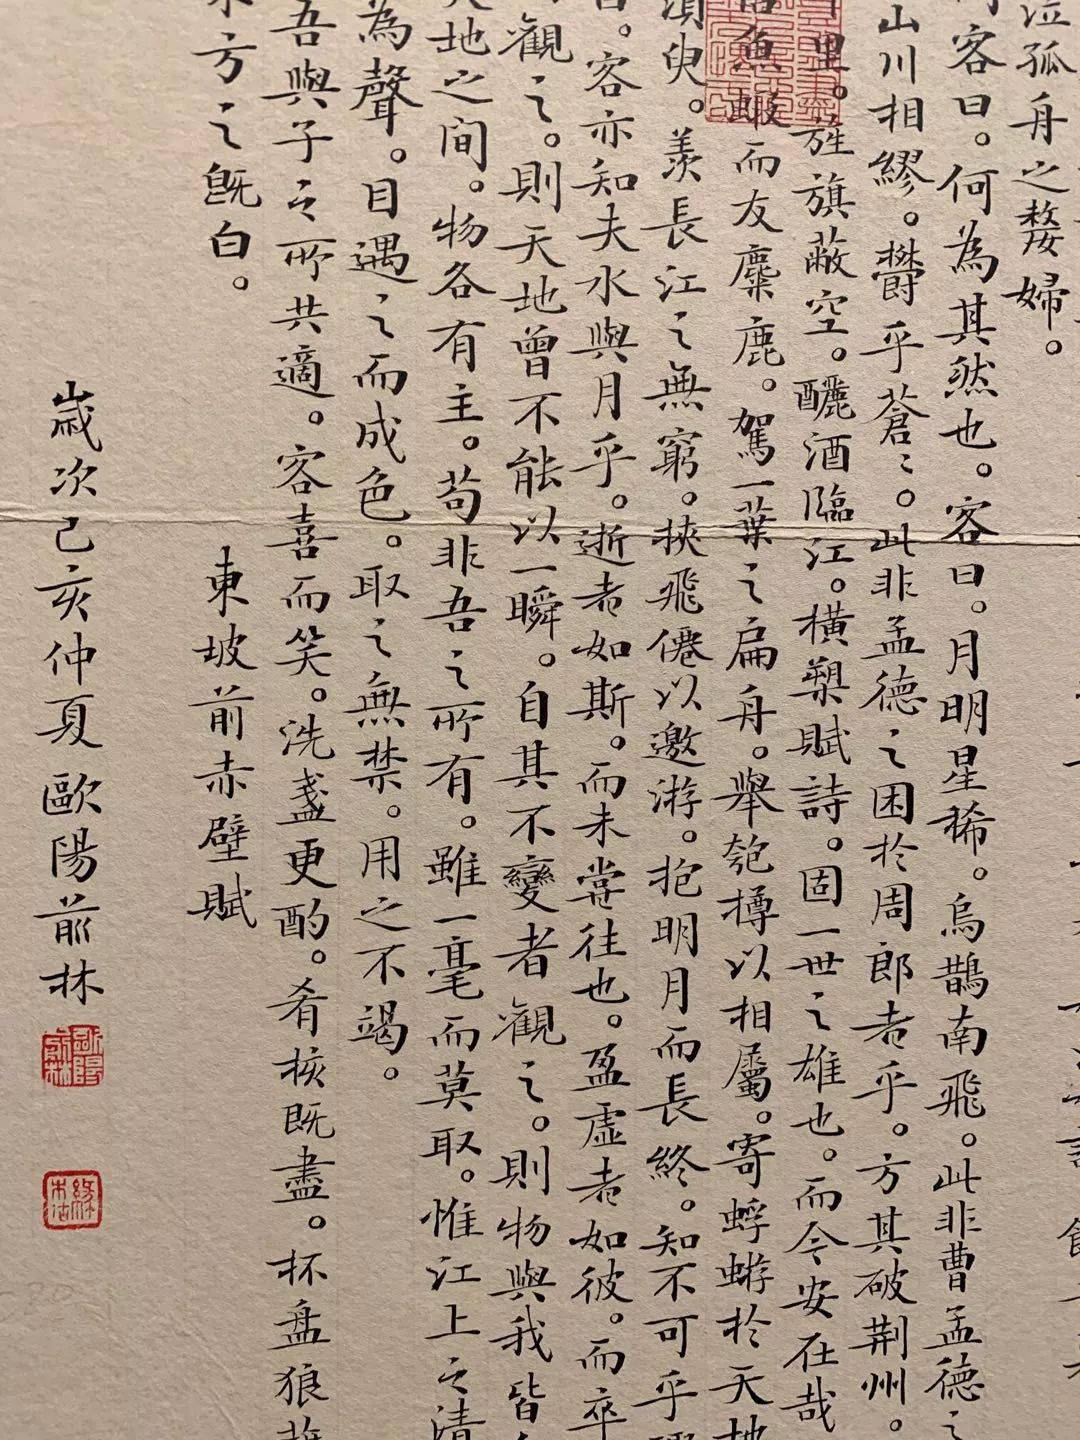 泣孤舟之嫠婦。
客曰。何為其然也。客曰。月明星稀。烏鵲南飛。此非曹孟德之
山川相繆。鬱乎蒼〻。此非孟德之困於周郎者乎。方其破荆州。
里。旌旗蔽空。釃酒臨江。橫槊賦詩。固一世之雄也。而今安在哉
魚蝦而友麋鹿。駕一葉之扁舟。舉匏樽以相屬。寄蜉蝣於天地
須臾。羨長江之無窮。挾飛僊以遨游。抱明月而長終。知不可乎驟
。客亦知夫水與月乎。逝者如斯。而未嘗往也。盈虛者如彼。而卒
觀之。則天地曾不能以一瞬。自其不變者觀之。則物與我皆
天地之间。物各有主。苟非吾之所有。雖一毫而莫取。惟江上之清
為聲。目遇之而成色。取之無禁。用之不竭。
吾與子之所共適。客喜而笑。洗盞更酌。肴核既盡。杯盤狼藉
東方之既白。
東坡前赤壁賦
歲次己亥仲夏歐陽前林